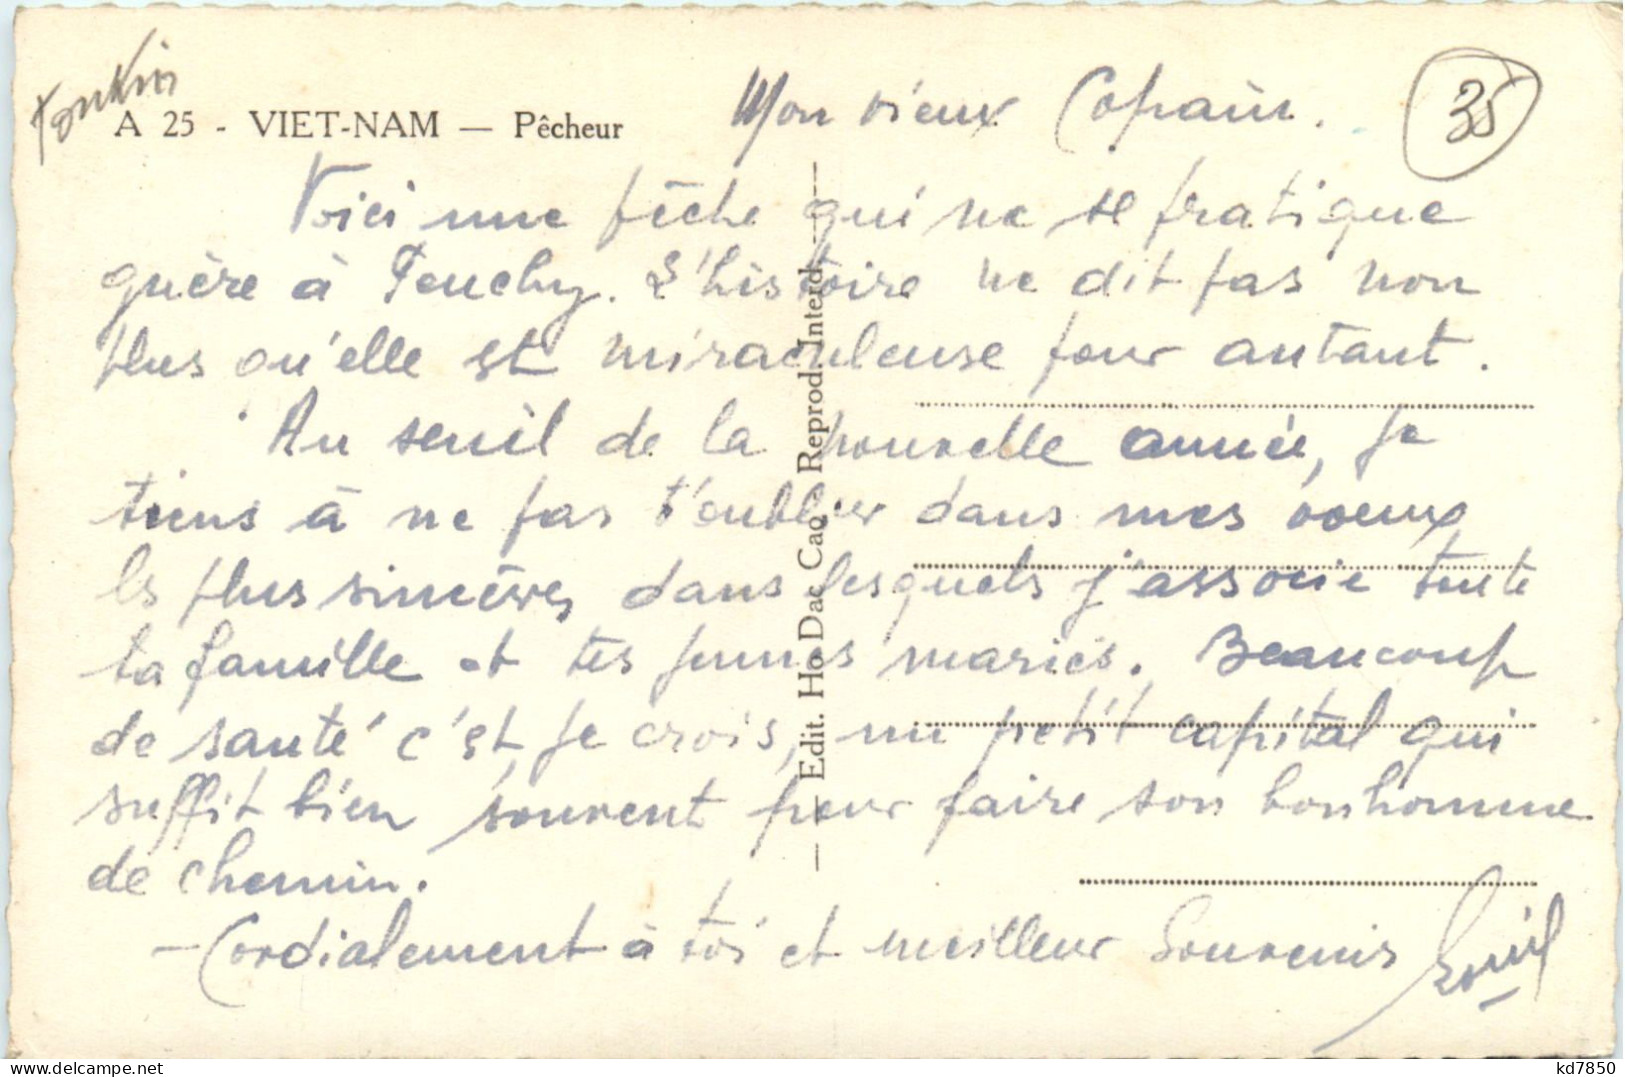 Tonkin
A 25 - VIET-NAM — Pêcheur
Mon vieux Copain.
35
Voici une pêche qui ne se pratique
guère à Peuchy. L'histoire ne dit pas non
plus qu'elle est miraculeuse pour autant.
Au seuil de la nouvelle année, je
tiens à ne pas t'oublier dans mes voeux
les plus sincères, dans lesquels j'associe toute
ta famille et tes jeunes mariés. Beaucoup
de santé c'est, je crois, un petit capital qui
suffit bien souvent pour faire son bonhomme
de chemin.
— Cordialement à toi et meilleur Souvenir
Emil
— Edit. Ho Dac Cao - Reprod. Interd. —
kd7850